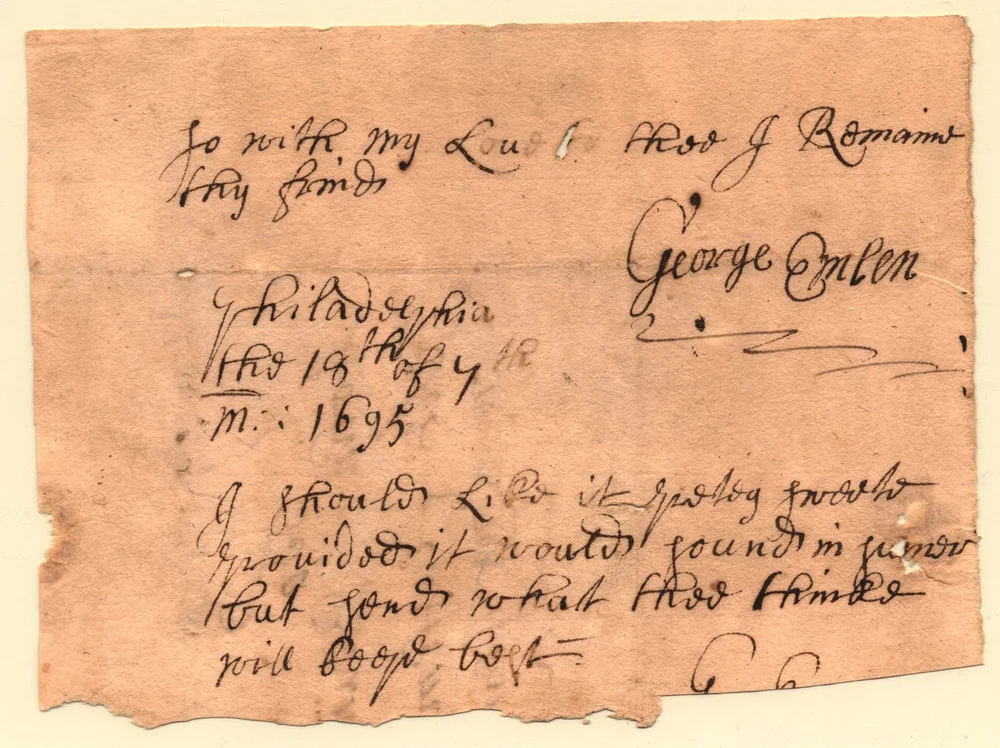 so with my Loue to thee I Remaine
thy frind
George Emlen
Philadelphia
the 18th of 7th
M:: 1695
I should Like it pretey sweete
provided it would sound in sumer
but send what thee thinke
will keepe best
G E